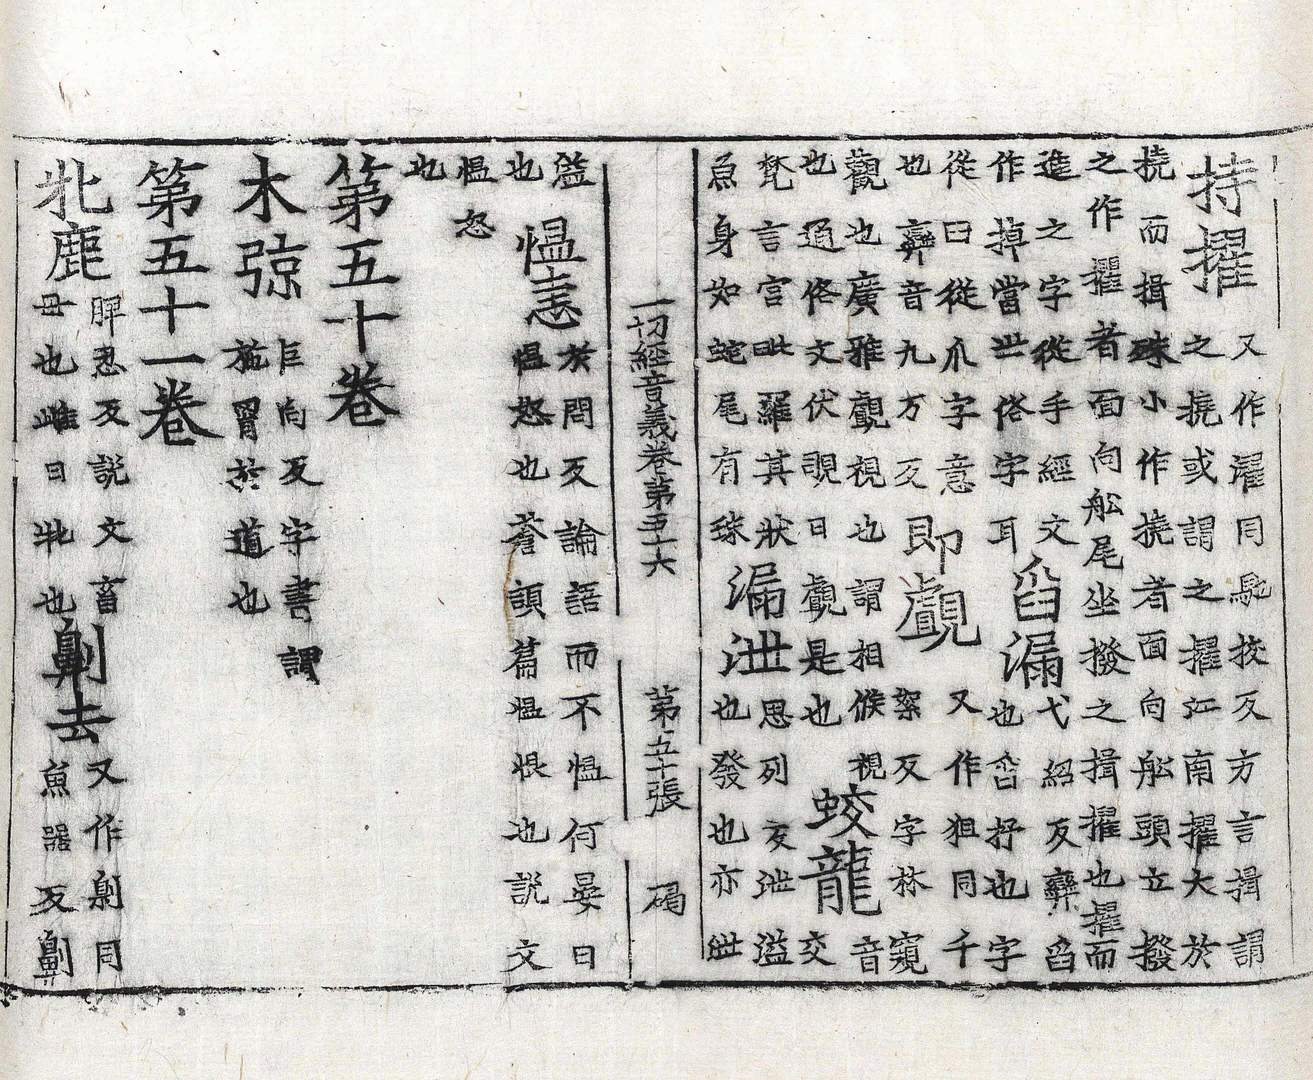 持擢
又作濯同馳挍反方言揖謂
之撓或謂之擢江南擢大於
撓而揖殊小作撓者面向舩頭立撥
之作擢者面向舩尾坐撥之揖擢也擢而
進之字從手經文
作掉當世俗字耳
舀漏
弋紹反彞舀
也舀抒也字
從臼從爪字意
也彞音九万反
即覰
又作狙同千
絮反字林窺
觀也廣雅覰視也謂相候視
也通俗文伏覗曰覰是也
蛟龍
音
交
梵言宫毗羅其狀
魚身如蛇尾有珠
漏泄
思列反泄溢
也發也亦泄
一切經音義卷第五十六
第五十張
碣
溢
也
慍恚
於問反論語而不慍何晏曰
慍怒也蒼頡篇慍恨也説文
慍怒
也
第五十卷
木弶
巨向反字書謂
施罥於道也
第五十一卷
牝鹿
脾忍反説文畜
母也雌曰牝也
劓去
又作㓷同
魚器反劓